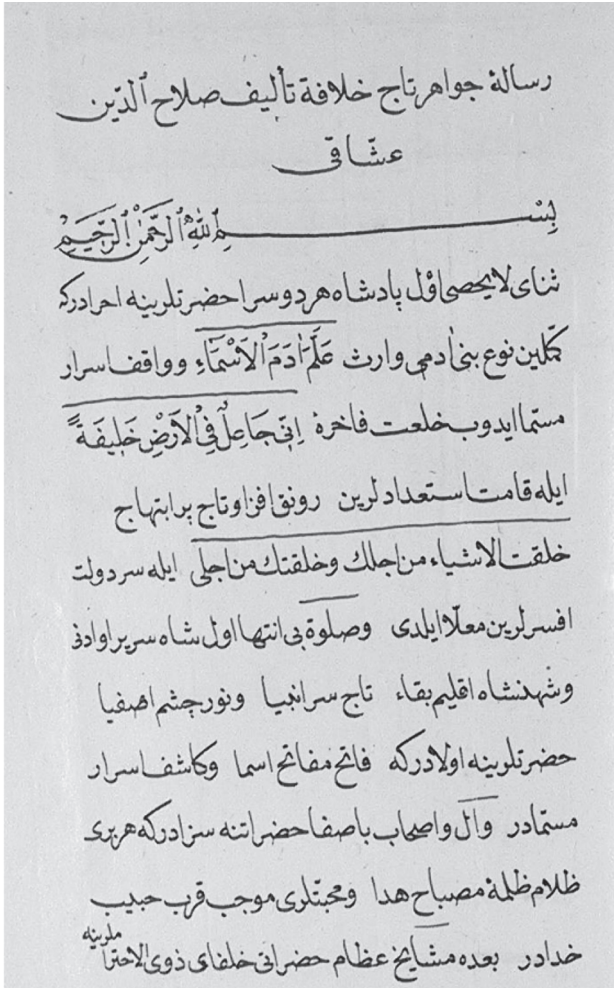 رسالۀ جواهر تاج خلافة تأليف صلاح الدّين
عشّاقى
بِسْمِ اللّٰهِ الرَّحْمٰنِ الرَّحِيمِ
ثناى لا يحصى اول پادشاه هر دو سرا حضرتلرينه احرادركه
كمّلين نوع بنى اٰدمى وارث عَلَّمَ اٰدَمَ الْاَسْمَاءَ و واقف اسرار
مستما ايدوب خلعت فاخرۀ اِنّى جَاعِلٌ فِى الْاَرْضِ خَلِيفَةً
ايله قامت استعدادلرين رونق افزا و تاج پر ابتهاج
خلقت الاشياء من اجلك وخلقتك من اجلى ايله سر دولت
افسرلرين معلّا ايلدى وصلوة بى انتها اول شاه سرير او ادنى
وشهنشاه اقليم بقاء تاج سر انبيا و نور چشم اصفيا
حضرتلرينه اولادركه فاتح مفاتح اسما وكاشف اسرار
مستمادر وآل واصحاب باصفا حضراتنه سزادركه هر برى
ظلام ظلمة مصباح هدا ومحبتلرى موجب قرب حبيب
خدادر بعده مشايخ عظام حضراتى خلفاى ذوى الاحتراملرينه